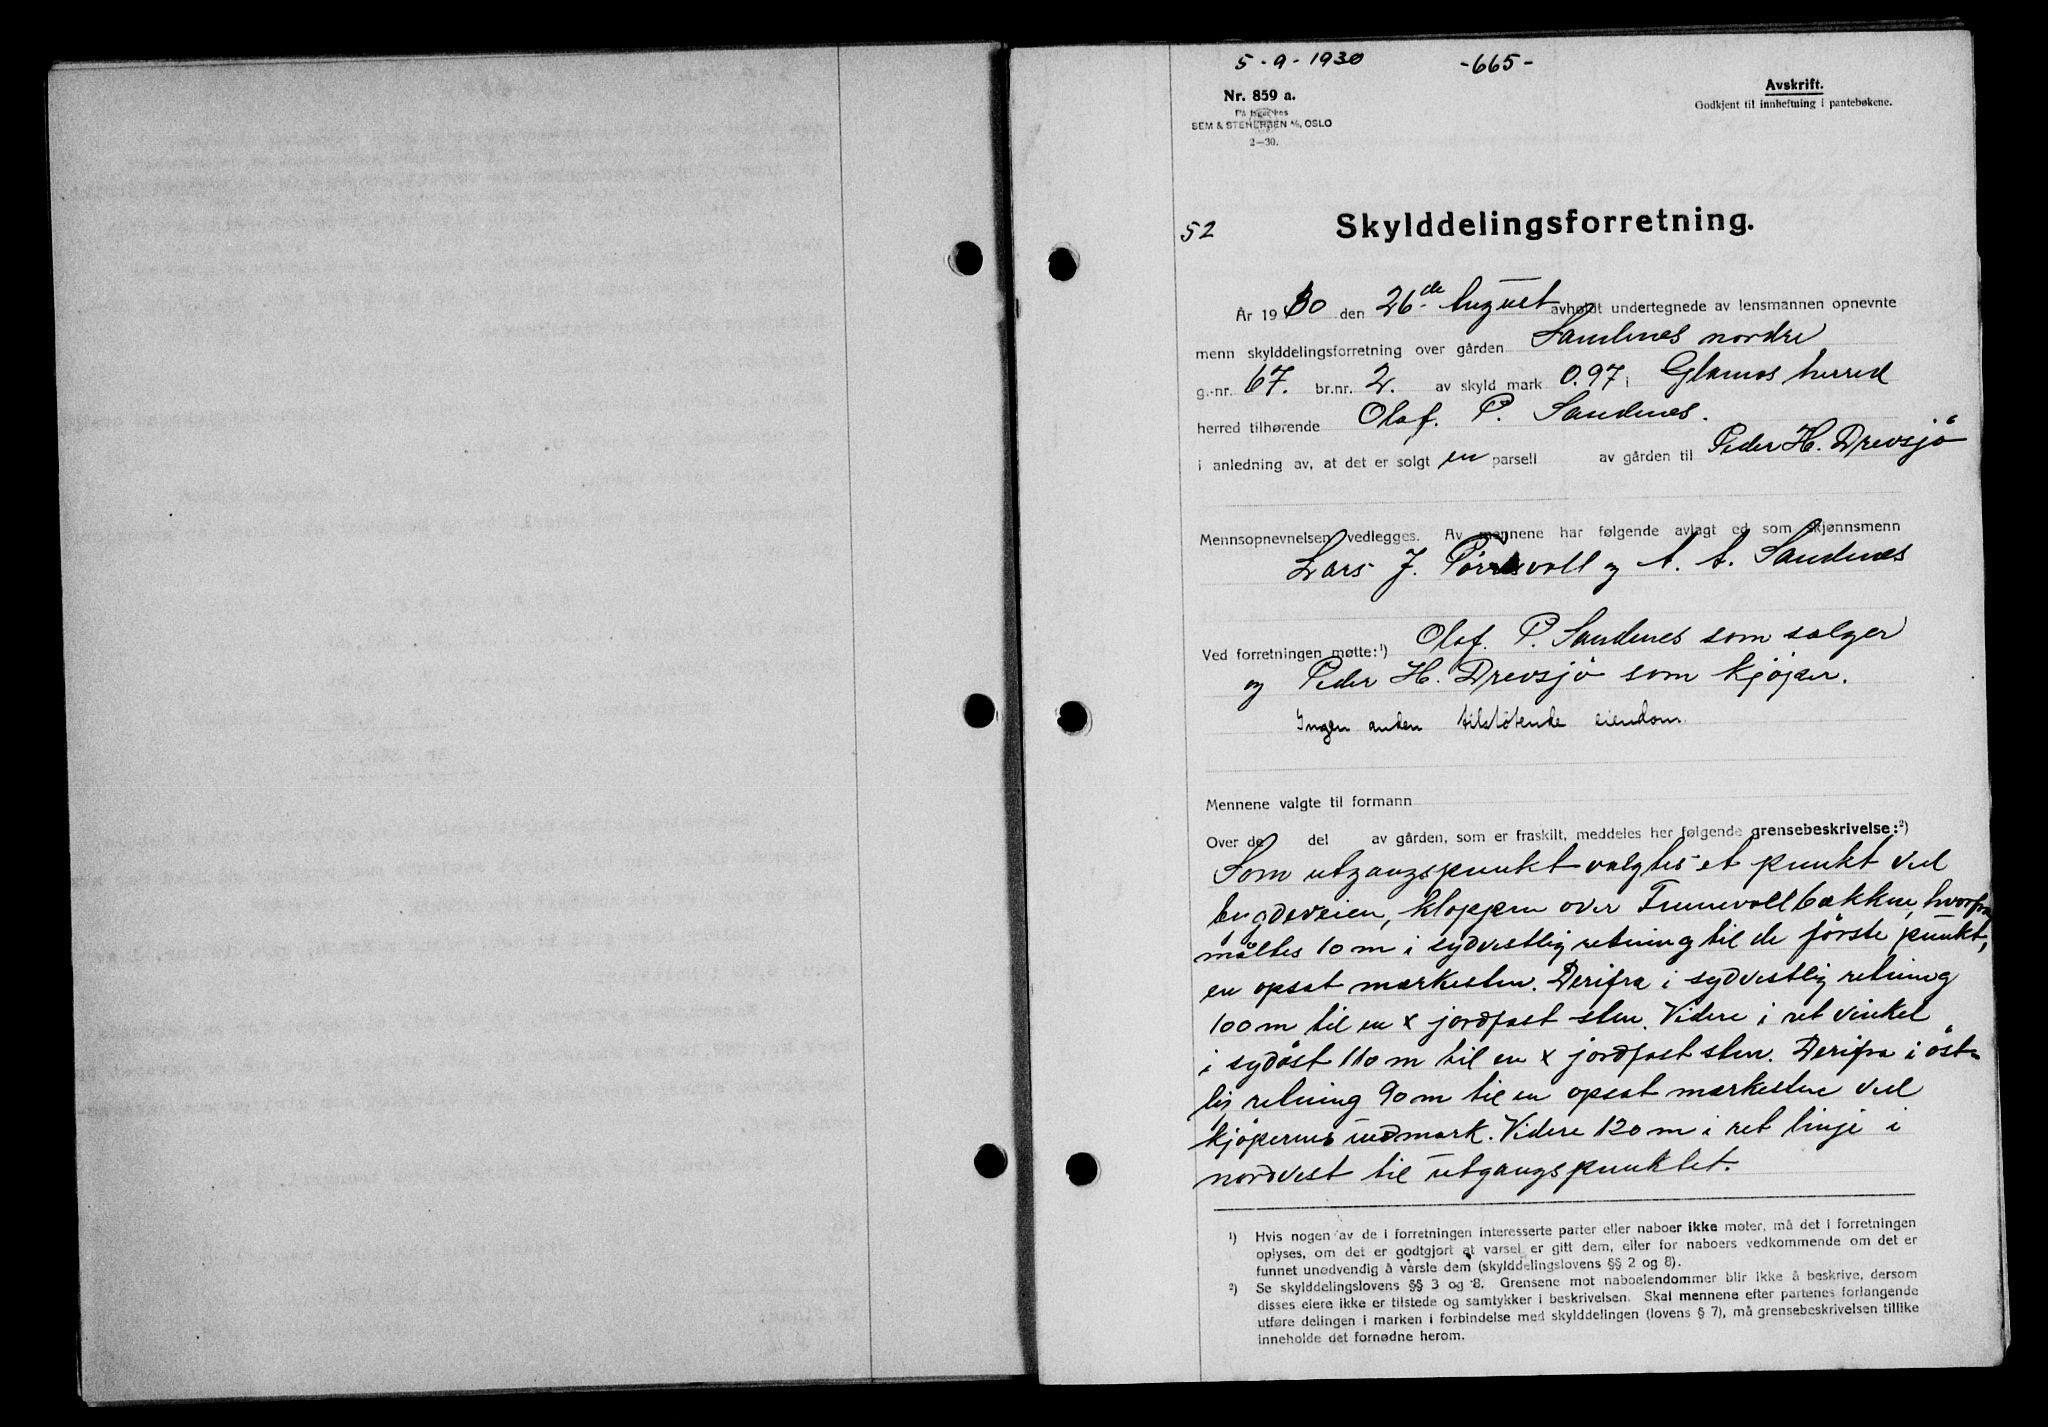 5-9-1930 -665-
Nr. 859 a.
På lager hos
SEM & STENERSEN A/S, OSLO
2—30.
Avskrift.
Godkjent til innheftning i pantebøkene.
52
Skylddelingsforretning.
År 1930 den 26de August avholdt undertegnede av lensmannen opnevnte
menn skylddelingsforretning over gården Sandnes nordre
g.-nr. 67. br.nr. 2. av skyld mark 0.97 i Glåmos herred
herred tilhørende Olaf. P. Sandnes.
i anledning av, at det er solgt en parsell av gården til Peder H. Drevsjö
Mennsopnevnelsen vedlegges. Av mennene har følgende avlagt ed som skjønnsmenn
Lars J. og A. A. Sandnes
Ved forretningen møtte:¹) Olaf. P. Sandnes som sælger
og Peder H. Drevsjö som kjöper.
Ingen anden tilstötende eiendom
Mennene valgte til formann
Over de del av gården, som er fraskilt, meddeles her følgende grensebeskrivelse:²)
Som utgangspunkt valgtes et punkt ved
bygdeveien, kloppen over bækken, hvorfra
måltes 10 m i sydvestlig retning til de förste punkt,
en opsat merkesten. Derifra i sydvestlig retning
100 m til en x jordfast sten. Videre i ret vinkel
i sydöst 110 m til en x jordfast sten. Derifra i öst-
lig retning 90 m til en opsat merkesten ved
kjöpernes indmark. Videre 120 m i ret linje i
nordvest til utgangspunktet.
¹) Hvis nogen av de i forretningen interesserte parter eller naboer ikke møter, må det i forretningen
oplyses, om det er godtgjort at varsel er gitt dem, eller for naboers vedkommende om det er
funnet unødvendig å varsle dem (skylddelingslovens §§ 2 og 8).
²) Se skylddelingslovens §§ 3 og 8. Grensene mot naboeiendommer blir ikke å beskrive, dersom
disses eiere ikke er tilstede og samtykker i beskrivelsen. Skal mennene efter partenes forlangende
utføre delingen i marken i forbindelse med skylddelingen (lovens § 7), må grensebeskrivelsen tillike
inneholde det fornødne herom.